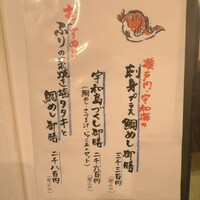 瀬戸内・宇和海の
刺身プラス鯛めし御膳
二千三百円
宇和島づくし御膳
二千六百円
おすすめ!!
ぶりの藁焼き塩タタキと
鯛めし御膳
二千八百円